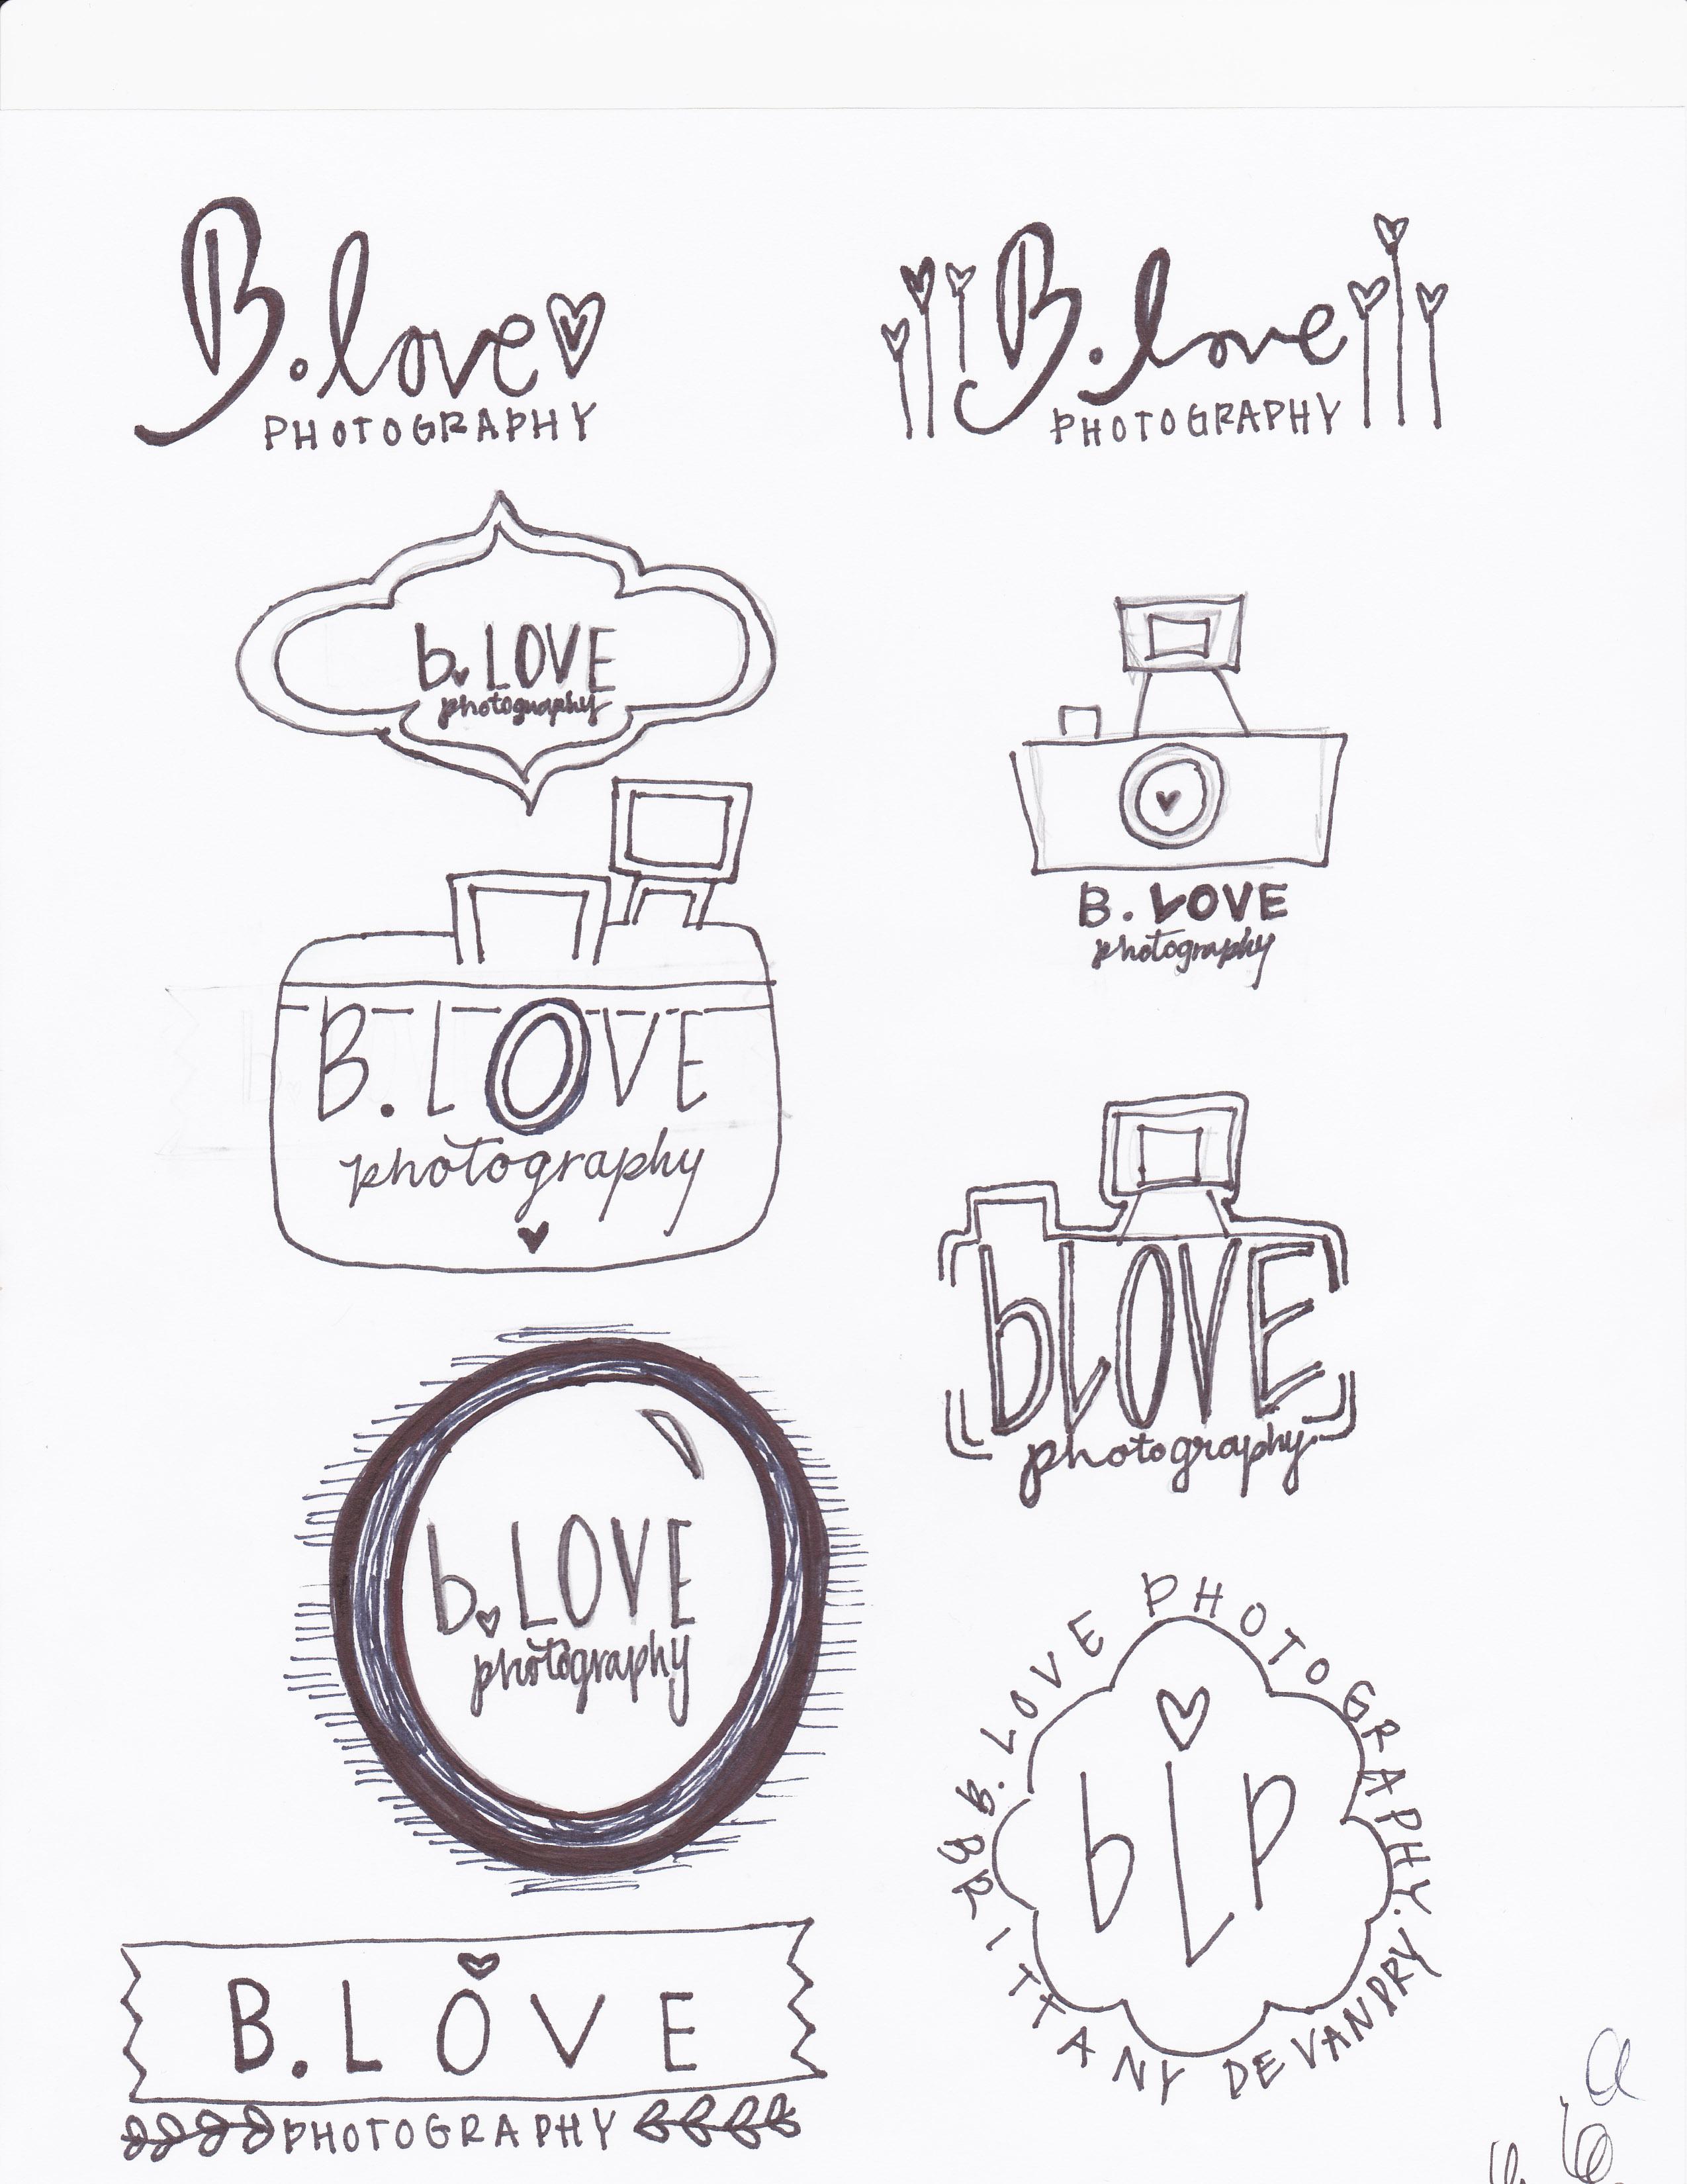 B. love
PHOTOGRAPHY
B. love
PHOTOGRAPHY
b. LOVE
photography
B. LOVE
photography
B. LOVE
photography
bLOVE
photography
b. LOVE
photography
B. LOVE PHOTOGRAPHY.
BRITTANY DEVANDRY
bLP
B. LOVE
PHOTOGRAPHY